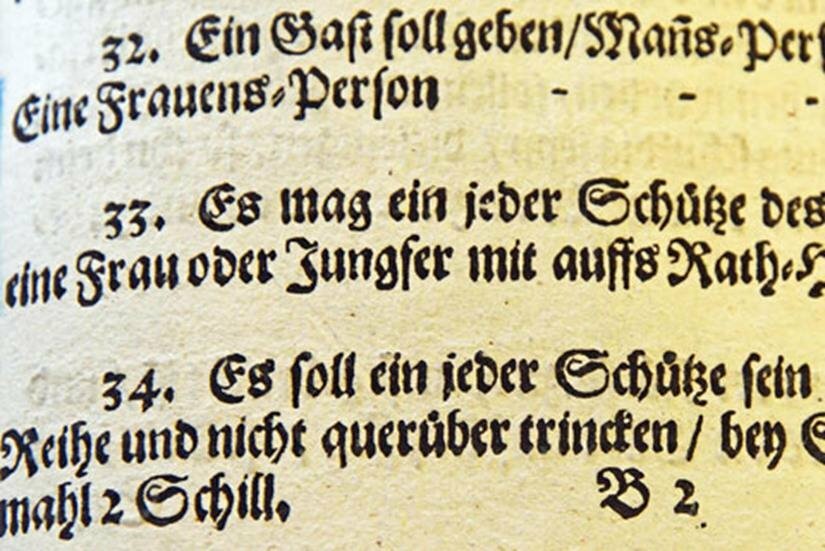 32. Ein Gast soll geben/Mañs-Pers
Eine Frauens-Person - - -
33. Es mag ein jeder Schütze des
eine Frau oder Jungfer mit auffs Rath-H
34. Es soll ein jeder Schütze sein
Reihe und nicht querüber trincken / bey S
mahl 2 Schill. B 2